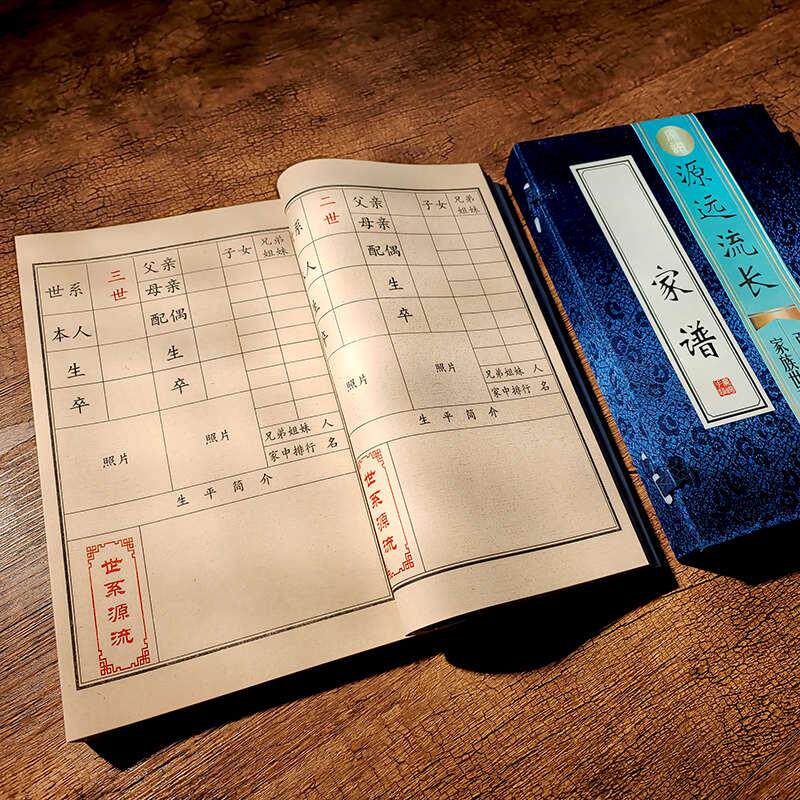 世系 三世 父亲 子女 兄弟姐妹
母亲
本人 配偶
生 生
卒 卒
照片 照片 兄弟姐妹 人
家中排行 名
生平简介
世系源流
系 二世 父亲 子女 兄弟姐妹
母亲
人 配偶
生 生
卒 卒
照片 照片 兄弟姐妹 人
家中排行 名
生平简介
世系源流
源远流长
家谱
家族世